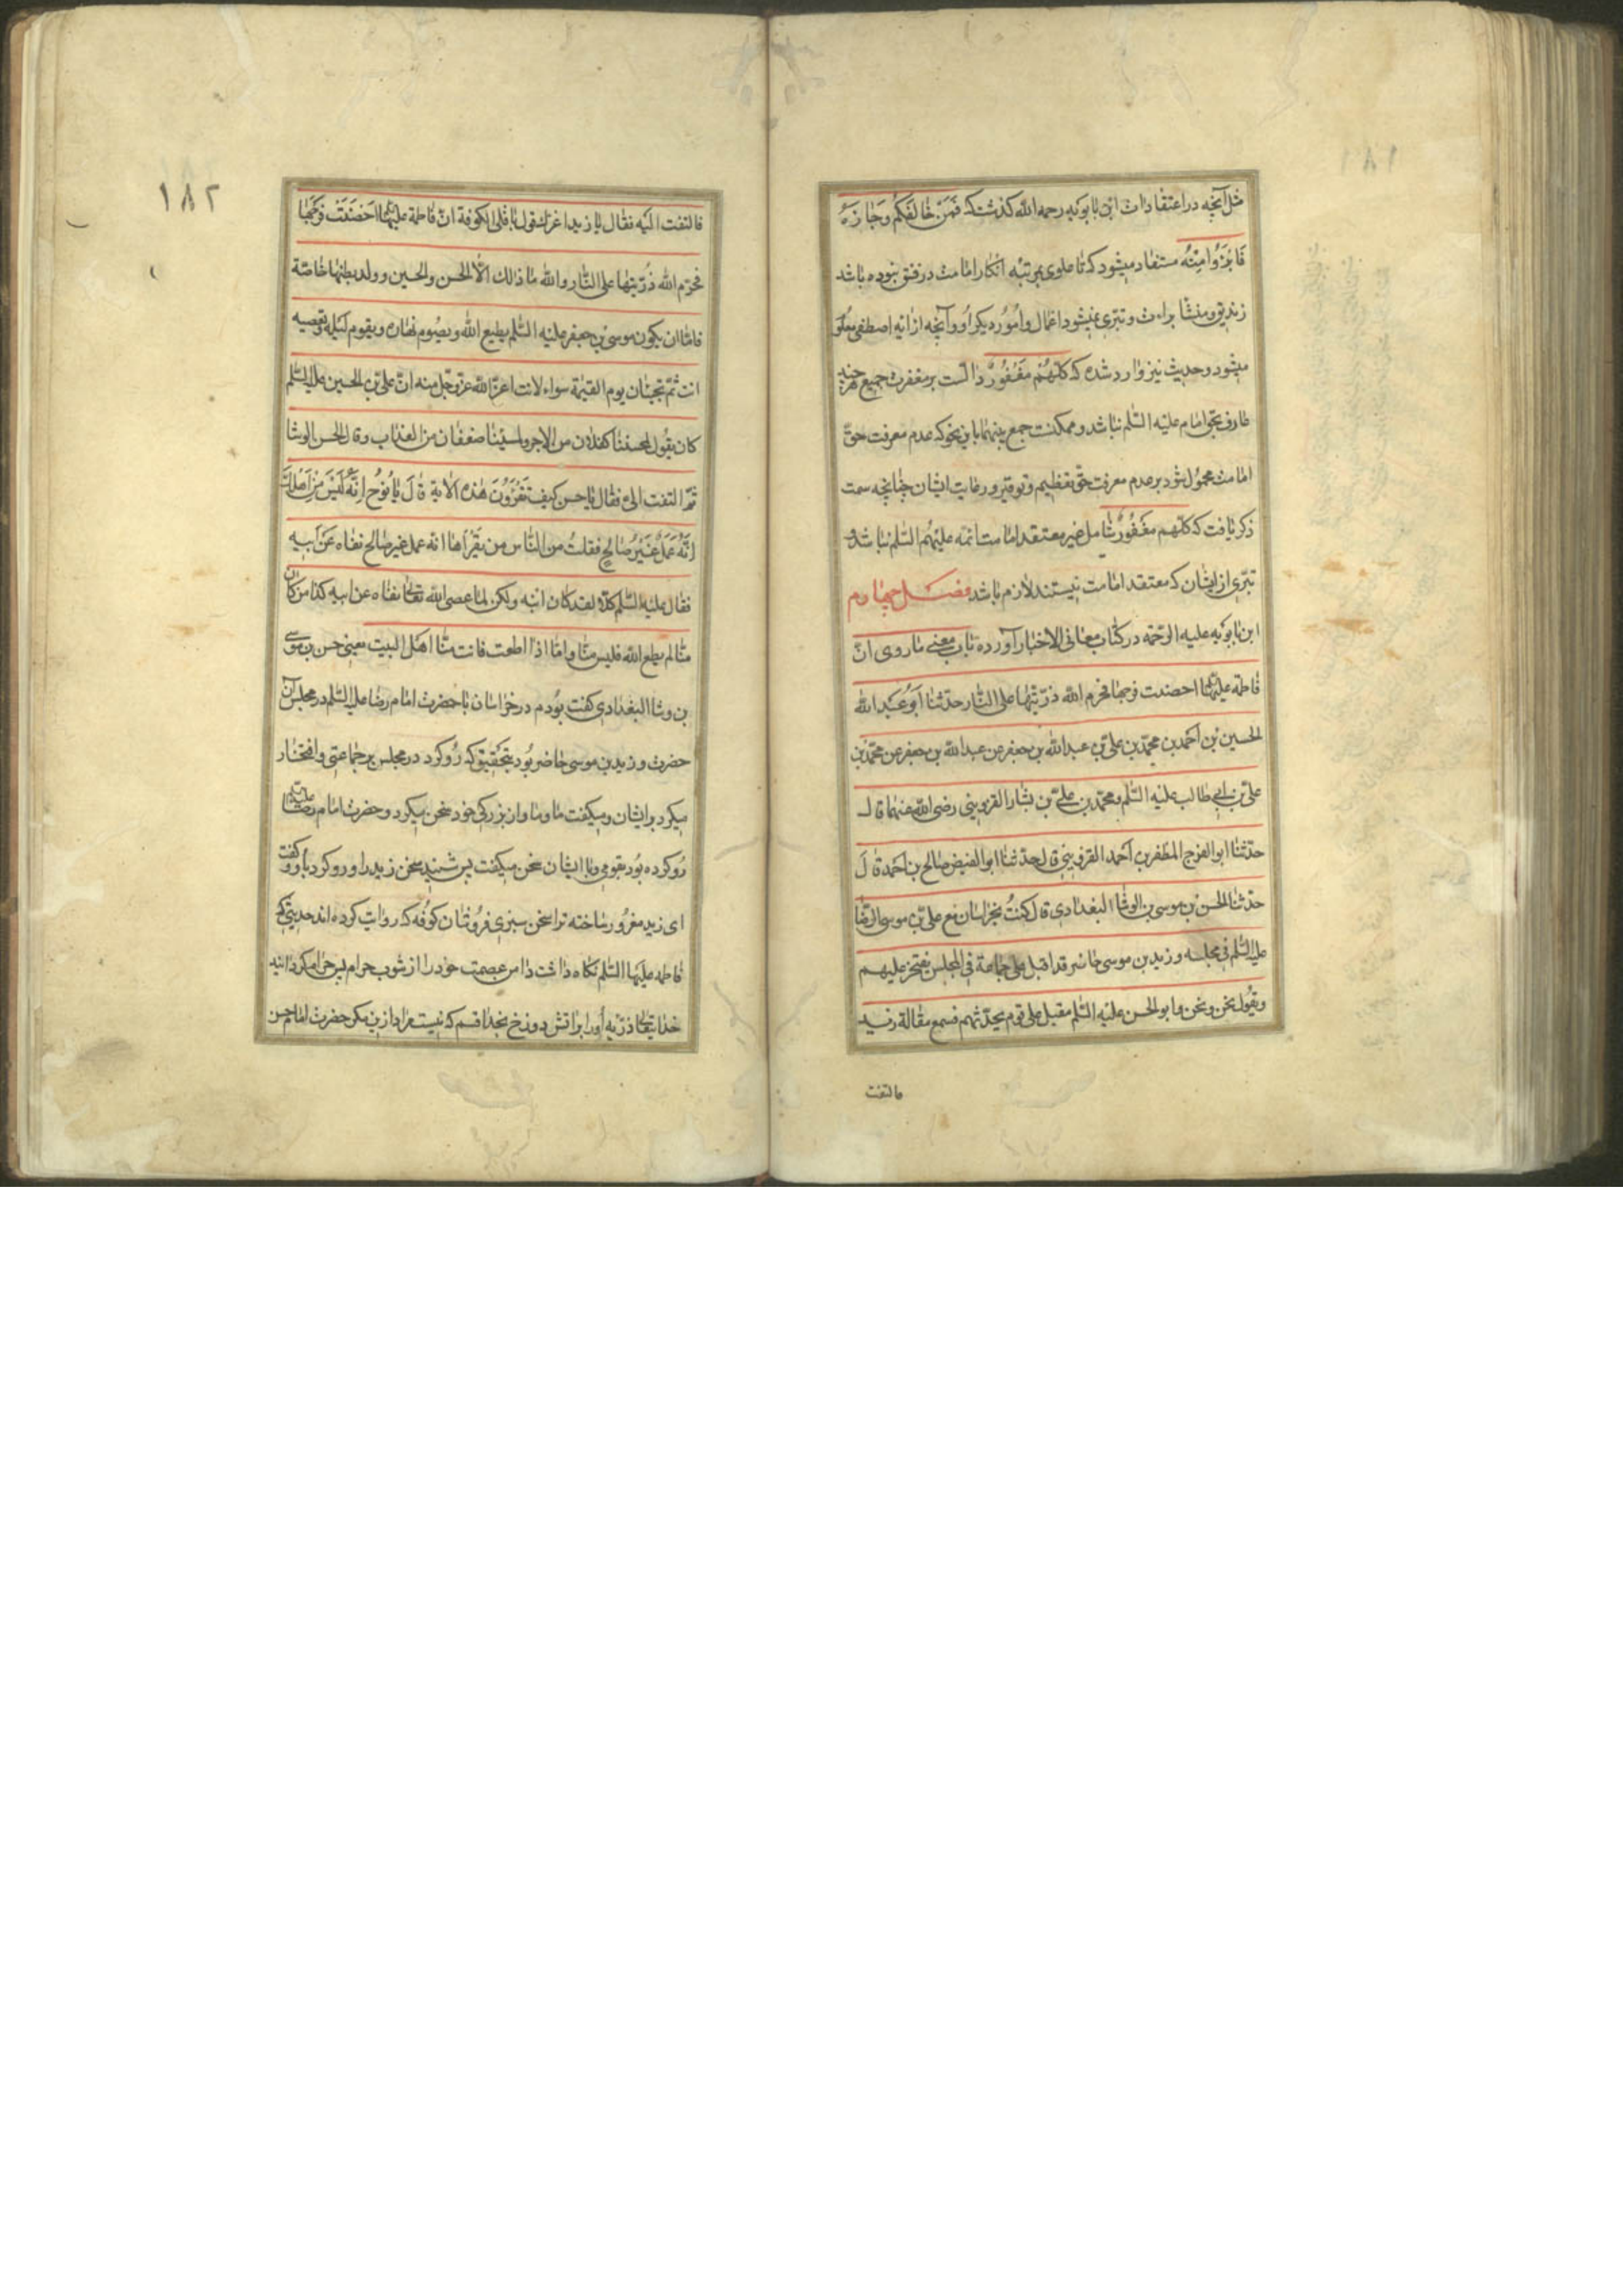 ١٨١
مثل آنچه در اعتقادات ابن بابویه رحمه الله کذشت که فَمَنْ خَالَفَکُم وَجَازَهُ
فَابْرَؤُا مِنْهُ مستفاد میشود که تا علوی بمرتبه انکار امامت در فسق نبوده باشد
زندیق و منشا براءت و تبری نمیشود اعمال و امور دیکر او و آنچه از آیه اصطفی معلوم
میشود و حدیث نیز وارد شده که کلّهُم مَغْفُورٌ دالست بر مغفرت جمیع هر چند
عارف بحق امام علیه السّلم نباشد و ممکنست جمع بینهما باین نحو که عدم معرفت حقّ
امامت محمول شود بر عدم معرفت حق تعظیم و توقیر و رعایت ایشان چنانچه سمت
ذکر یافت که کلّهم مغفورٌ شامل غیر معتقد امامت ائمه علیهم السّلم نباشد و
تبرّی از ایشان که معتقد امامت نیستند لازم باشد فصل چهارم
ابن بابویه علیه الرّحمه در کتاب معانی الاخبار آورده باب معنی ما روی انّ
فاطمه علیها احصنت فرجها فحرم الله ذرّیتها علی النّار حدّثنا أبو عبد الله
الحسین بن احمد بن محمّد بن علیّ بن عبدالله بن جعفر عن عبدالله بن جعفر عن محمّد بن
علیّ بن ابی طالب علیه السّلم و محمّد بن علیّ بن بشار القزوینی رضی الله عنهما قال
حدّثنا ابو الفرج المظفر بن احمد القزوینی قال حدّثنا ابو الفیض صالح بن احمد قال
حدّثنا الحسن بن موسی بن الوشّا البغدادی قال کنتُ بخراسان مع علیّ بن موسی الرّضا
علیه السّلم فی مجلسه و زید بن موسی حاضر قد اقبل علی جماعة فی المجلس یفتخر علیهم
ویقول نحن ونحن وابو الحسن علیه السّلم مقبل علی قوم یحدّثهم فسمع مقالة زید
فالتفت
١٨٢
فالتفت الیه فقال یا زید اغرّک قول باقلی الکوفة انّ فاطمة علیها احَصَنَتْ فَرْجَهَا
فحرّم الله ذُرّیتها علی النّار والله ما ذالک الّا الحسن والحسین و ولد بطنها خاصّة
فامّا ان یکون موسی بن جعفر علیه السّلم یطیع الله ویصُوم نهاره ویقوم لیله وتعصیه
انت ثُمّ تجیئان یوم القیٰمة سواء لانت اعزّ الله عزّوجل منه انّ علیّ بن الحسین علیه السّلم
کان یقُول لمحسننا کفلان من الاجر ولمسیئنا ضعفان من العذاب وقال الحسن الوشا
ثمّ التفت الیّ فقال یا حسن کیف تَقْرَؤُنَ هٰذه الآیة قالَ یا نُوحُ اِنَّهُ لَیْسَ مِنْ اَهْلِکَ
اِنَّهُ عَمَلٌ غَیْرُ صَالِحٍ فقلتُ من النّاس من یَقْرَأها انه عمل غیر صالح نفاه عَن ابیه
فقال علیه السّلم کلّا لقد کان ابنه ولکن لمّا عصی الله تعالی نفاه عن ابیه کذا من کان
منّا لم یطع الله فلیس منّا و امّا اذا اطعت فانت منّا اهل البیت یعنی حسن بن موسی
بن وشا البغدادی کفت بُودم در خراسان با حضرت امام رضا علیه السّلم در مجلس آن
حضرت و زید بن موسی حاضر بُود بتحقیق که رُو کرد در مجلس بر جماعتی و افتخار
میکرد بر ایشان و میکفت ما و ما و از بزرکی خود سخن میکرد و حضرت امام رضا علیه
رُو کرده بُود بقومی و با ایشان سخن میکفت پس شنید سخن زید را و رو کرد باو و کفت
ای زید مغرُور ساخته ترا سخن سبزی فرُوشان کوُفه که روایت کرده اند حدیثی که
فاطمه علیها السّلم نکاه داشت دامن عصمت خود را از شوب حرام پس حرام کردانید
خدایتعالی ذرّیه اورا بر آتش دوزخ بخدا قسم که نیست مراد ازین مکر حضرت امام حسن